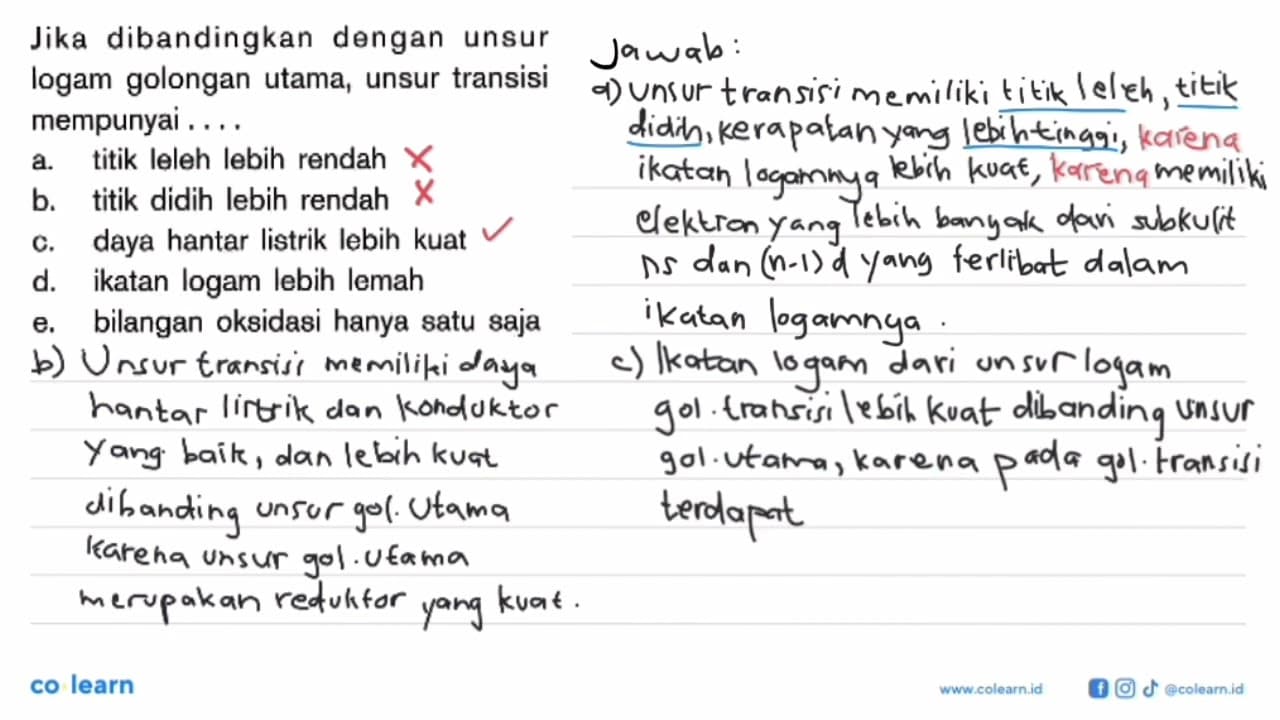 Jika dibandingkan dengan unsur
logam golongan utama, unsur transisi
mempunyai . . . .
a. titik leleh lebih rendah ✗
b. titik didih lebih rendah ✗
c. daya hantar listrik lebih kuat ✓
d. ikatan logam lebih lemah
e. bilangan oksidasi hanya satu saja
Jawab :
a) Unsur transisi memiliki titik leleh, titik
didih, kerapatan yang lebih tinggi, karena
ikatan logamnya lebih kuat, karena memiliki
elektron yang lebih banyak dari subkulit
ns dan (n-1) d yang terlibat dalam
ikatan logamnya .
b) Unsur transisi memiliki daya
hantar listrik dan konduktor
yang baik, dan lebih kuat
dibanding unsur gol. Utama
karena unsur gol. Utama
merupakan reduktor yang kuat .
c) Ikatan logam dari unsur logam
gol. transisi lebih kuat dibanding unsur
gol. utama, karena pada gol. transisi
terdapat
co learn
www.colearn.id
@colearn.id